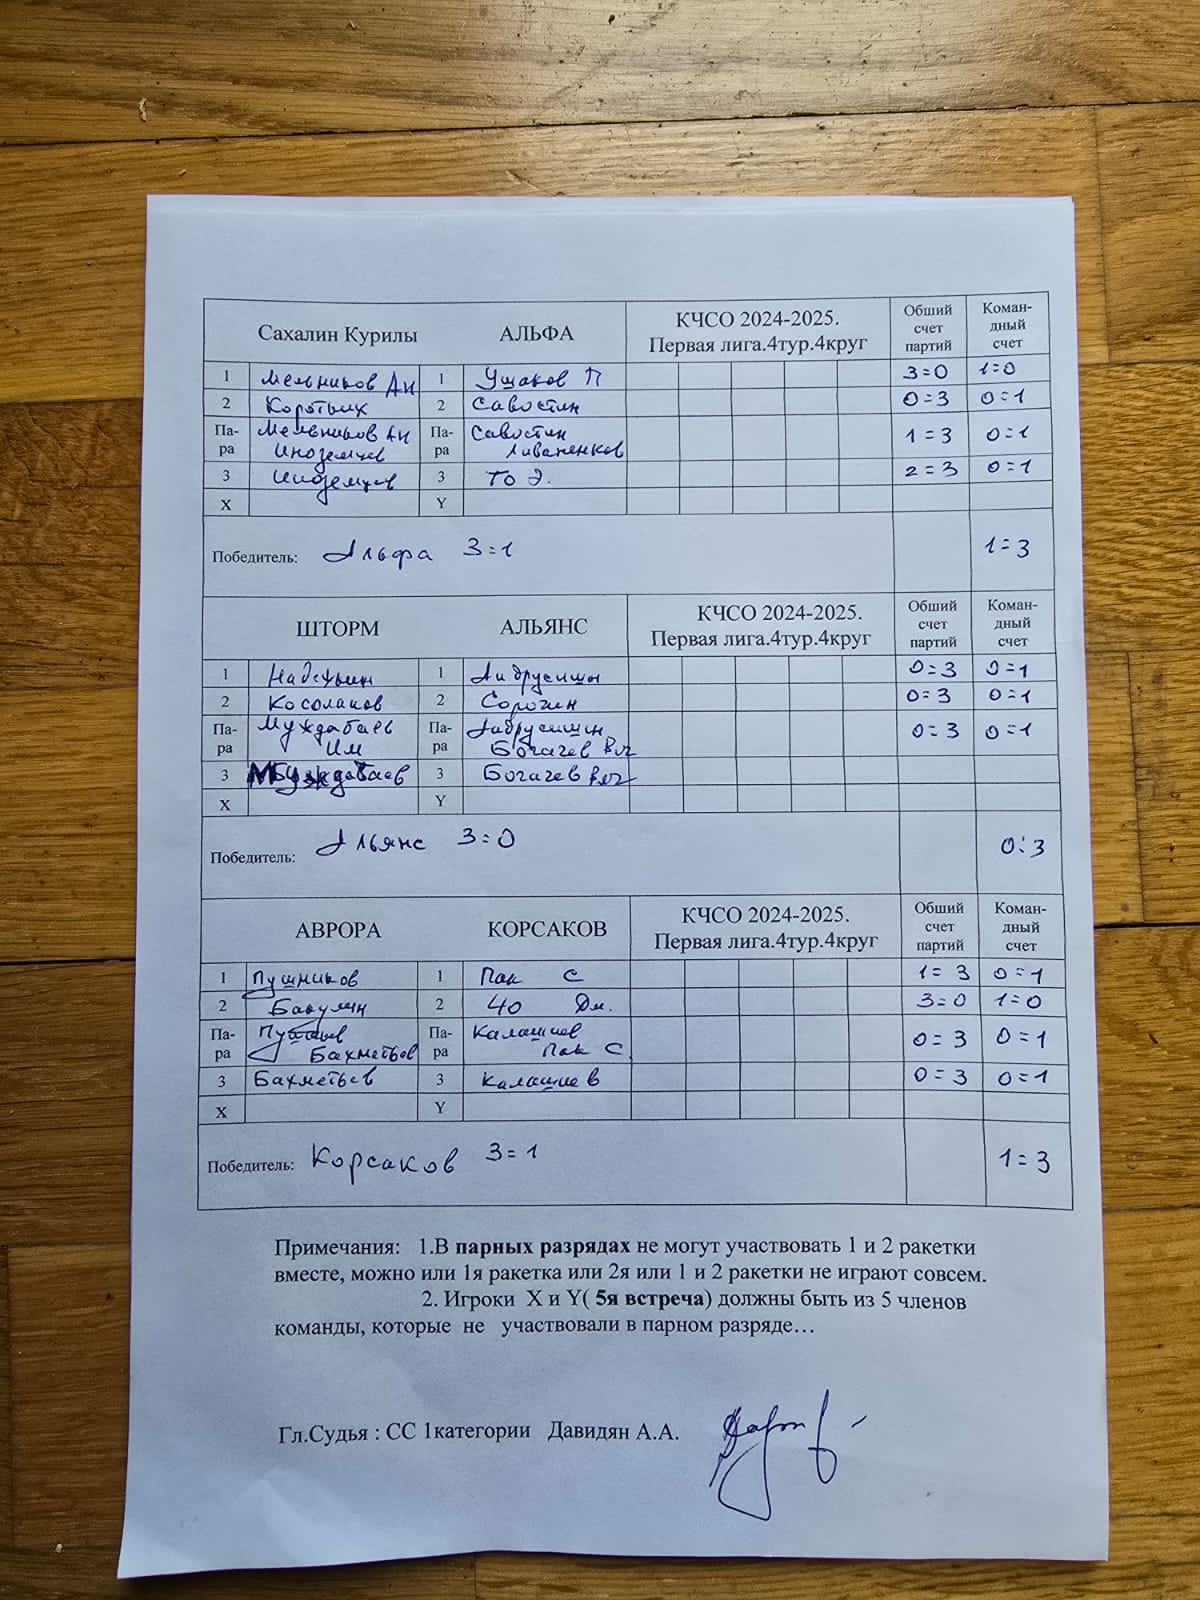 Сахалин Курилы АЛЬФА КЧСО 2024-2025. Первая лига.4тур.4круг Обший счет партий Коман-дный счет
1 Мельников Ан 1 Ушаков П 3=0 1=0
2 Коротких 2 Савостин 0=3 0=1
Па-ра Мельников Ан Иноземцев Па-ра Савостин Ливаненков 1=3 0=1
3 Иноземцев 3 То Э. 2=3 0=1
X Y
Победитель: Альфа 3=1 1=3
ШТОРМ АЛЬЯНС КЧСО 2024-2025. Первая лига.4тур.4круг Обший счет партий Коман-дный счет
1 1 0=3 0=1
2 Косолапов 2 Сорокин 0=3 0=1
Па-ра Муждабаев Им Па-ра Богачев Вл 0=3 0=1
3 Муждабаев 3 Богачев Вл
X Y
Победитель: Альянс 3=0 0:3
АВРОРА КОРСАКОВ КЧСО 2024-2025. Первая лига.4тур.4круг Обший счет партий Коман-дный счет
1 Пушников 1 Пак С 1=3 0=1
2 Бакулин 2 Дм. 3=0 1=0
Па-ра Бахметьев Па-ра Калашнев Пак С 0=3 0=1
3 Бахметьев 3 Калашнев 0=3 0=1
X Y
Победитель: Корсаков 3=1 1=3
Примечания: 1.В парных разрядах не могут участвовать 1 и 2 ракетки
вместе, можно или 1я ракетка или 2я или 1 и 2 ракетки не играют совсем.
2. Игроки X и Y( 5я встреча) должны быть из 5 членов
команды, которые не участвовали в парном разряде…
Гл.Судья : СС 1категории Давидян А.А.